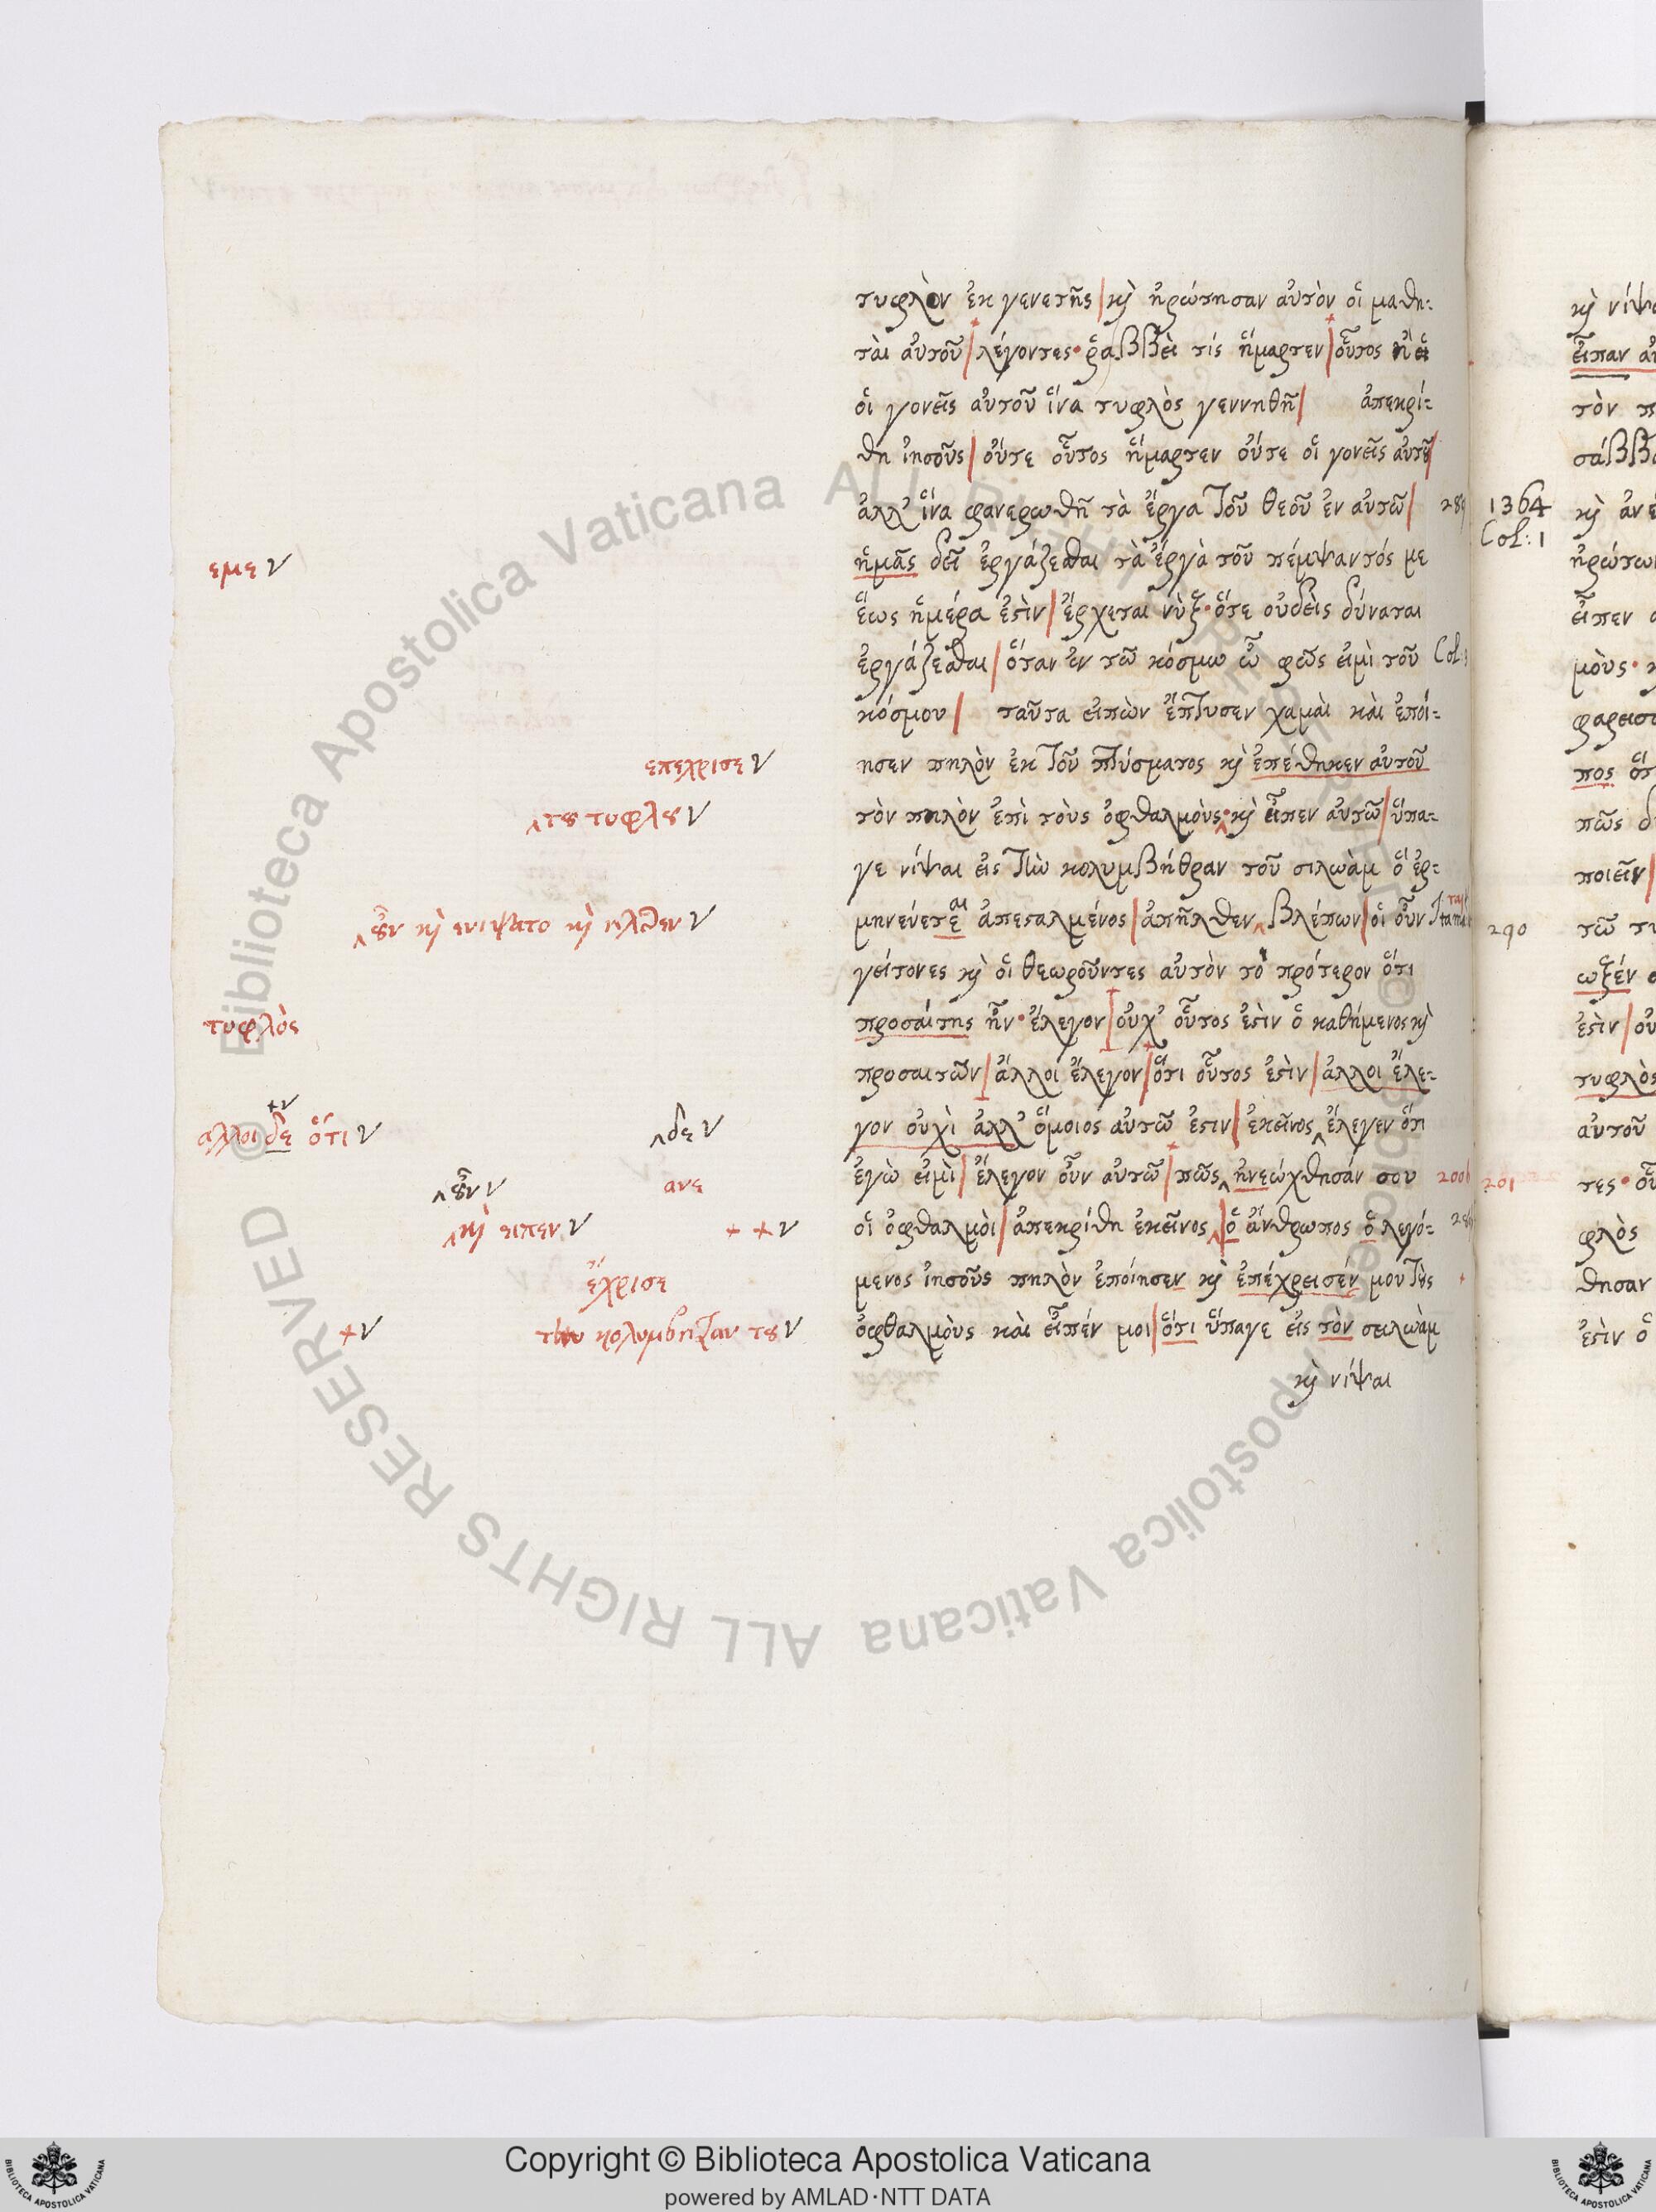 τυφλὸν ἐκ γενετῆς | κὴ ἠρώτησαν αὐτὸν οἱ μαθη:
τὰι αὐτοῦ | λέγοντες· ῥαββεὶ τίς ἥμαρτεν | οὗτος ἢ
οἱ γονεῖς αὐτοῦ ἵνα τυφλὸς γεννηθῆ | ἀπεκρί:
θη ἰησοῦς | οὔτε οὗτος ἥμαρτεν οὔτε οἱ γονεῖς αὐτοῦ |
ἀλλ' ἵνα φανερωθῆ τὰ ἔργα τοῦ θεοῦ ἐν αὐτῶ |
1364
Col: 1
εμε
ἡμᾶς δεῖ ἐργάζεσθαι τὰ ἔργα τοῦ πέμψαντός με
ἕως ἡμέρα ἐστὶν | ἔρχεται νὺξ· ὅτε οὐδεὶς δύναται
ἐργάζεσθαι | ὅταν ἐν τῶ κόσμω ὦ φῶς εἰμὶ τοῦ Col:
κόσμου | ταῦτα εἰπὼν ἔπτυσεν χαμὰι κὰι ἐποί:
επεχρισε
ησεν πηλὸν ἐκ τοῦ πτύσματος κὴ ἐπέθηκεν αὐτοῦ
του τυφλου
τὸν πηλὸν ἐπὶ τοὺς ὀφθαλμούς· κὴ εἶπεν αὐτῶ | ὕπα:
γε νίψαι εἰς τὴν κολυμβήθραν τοῦ σιλωὰμ ὃ ἑρ:
οὖν κὴ ενιψατο κὴ ηλθεν
μηνεύετε αι ἀπεσταλμένος | ἀπῆλθεν βλέπων | οἱ οὖν
290
γείτονες κὴ οἱ θεωροῦντες αὐτὸν τὸ πρότερον ὅτι
τυφλὸς
προσαίτης ἦν· ἔλεγον | οὐχ' οὗτος ἐστὶν ὁ καθήμενος κὴ
προσαιτῶν | ἄλλοι ἔλεγον | ὅτι οὗτος ἐστὶν | ἄλλοι ἔλε:
αλλοι δὲ ὅτι
δε
γον οὐχὶ ἀλλ' ὅμοιος αὐτῶ ἐστιν | ἐκεῖνος ἔλεγεν ὅτι
οὖν
ανε
ἐγὼ εἰμὶ | ἔλεγον οὖν αὐτῶ | πῶς ἠνεώχθησάν σου
201
κὴ ειπεν
οἱ ὀφθαλμὸι | ἀπεκρίθη ἐκεῖνος | ὁ ἄνθρωπος ὁ λεγό:
ἔχρισε
μενος ἰησοῦς πηλὸν ἐποίησεν κὴ ἐπέχρεισέν μου τοὺς
την κολυμβηθραν του
ὀφθαλμοὺς κὰι εἶπέν μοι | ὅτι ὕπαγε εἰς τὸν σειλωὰμ
κὴ νίψαι
Copyright © Biblioteca Apostolica Vaticana
powered by AMLAD·NTT DATA